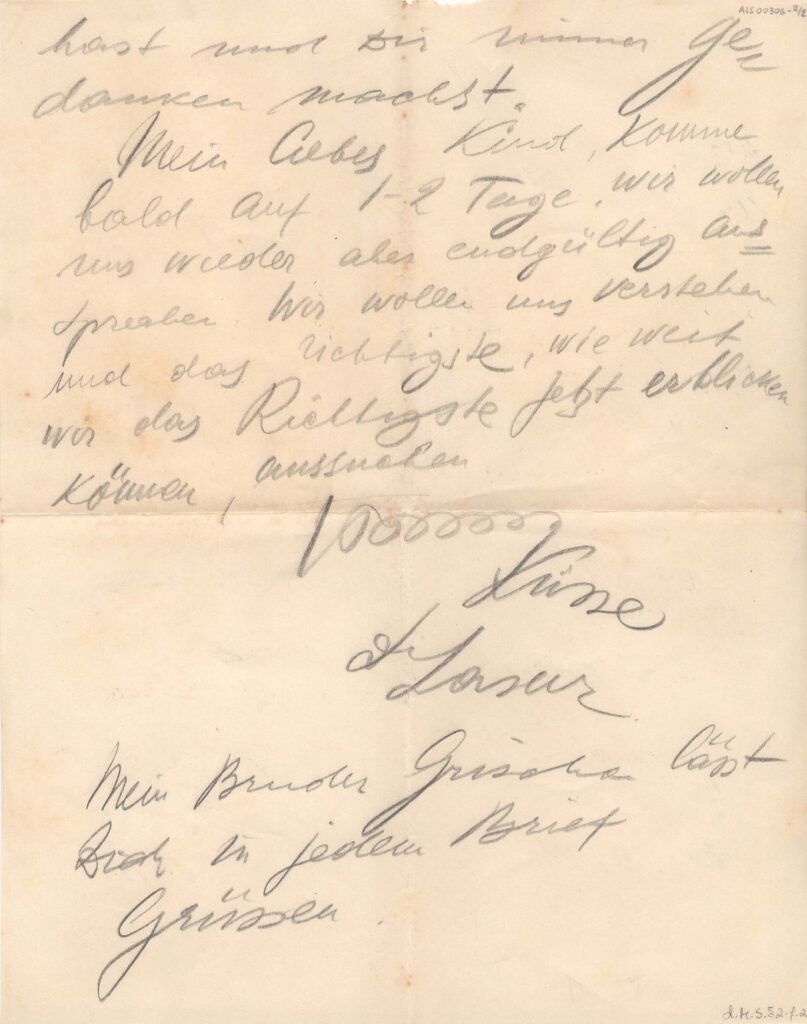 ALS00306-2/2
hast und Dir immer Ge=
danken machst.
Mein liebes Kind, komme
bald auf 1-2 Tage, wir wollen
uns wieder aber endgültig aus=
sprechen. Wir wollen uns verstehen
und das richtigste, wie weit
wir das Richtigste jetzt erblicken
können, aussuchen.
Küsse
Dr Lasar
Mein Bruder Grischa lässt
Dich in jedem Brief
Grüssen.